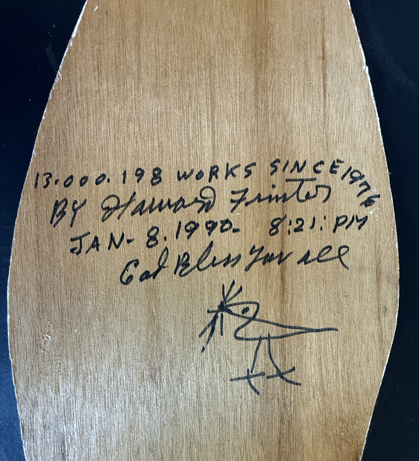 13.000.198 WORKS SINCE 1976
BY Howard Finster
JAN- 8.1990- 8:21: PM
God Bless You all